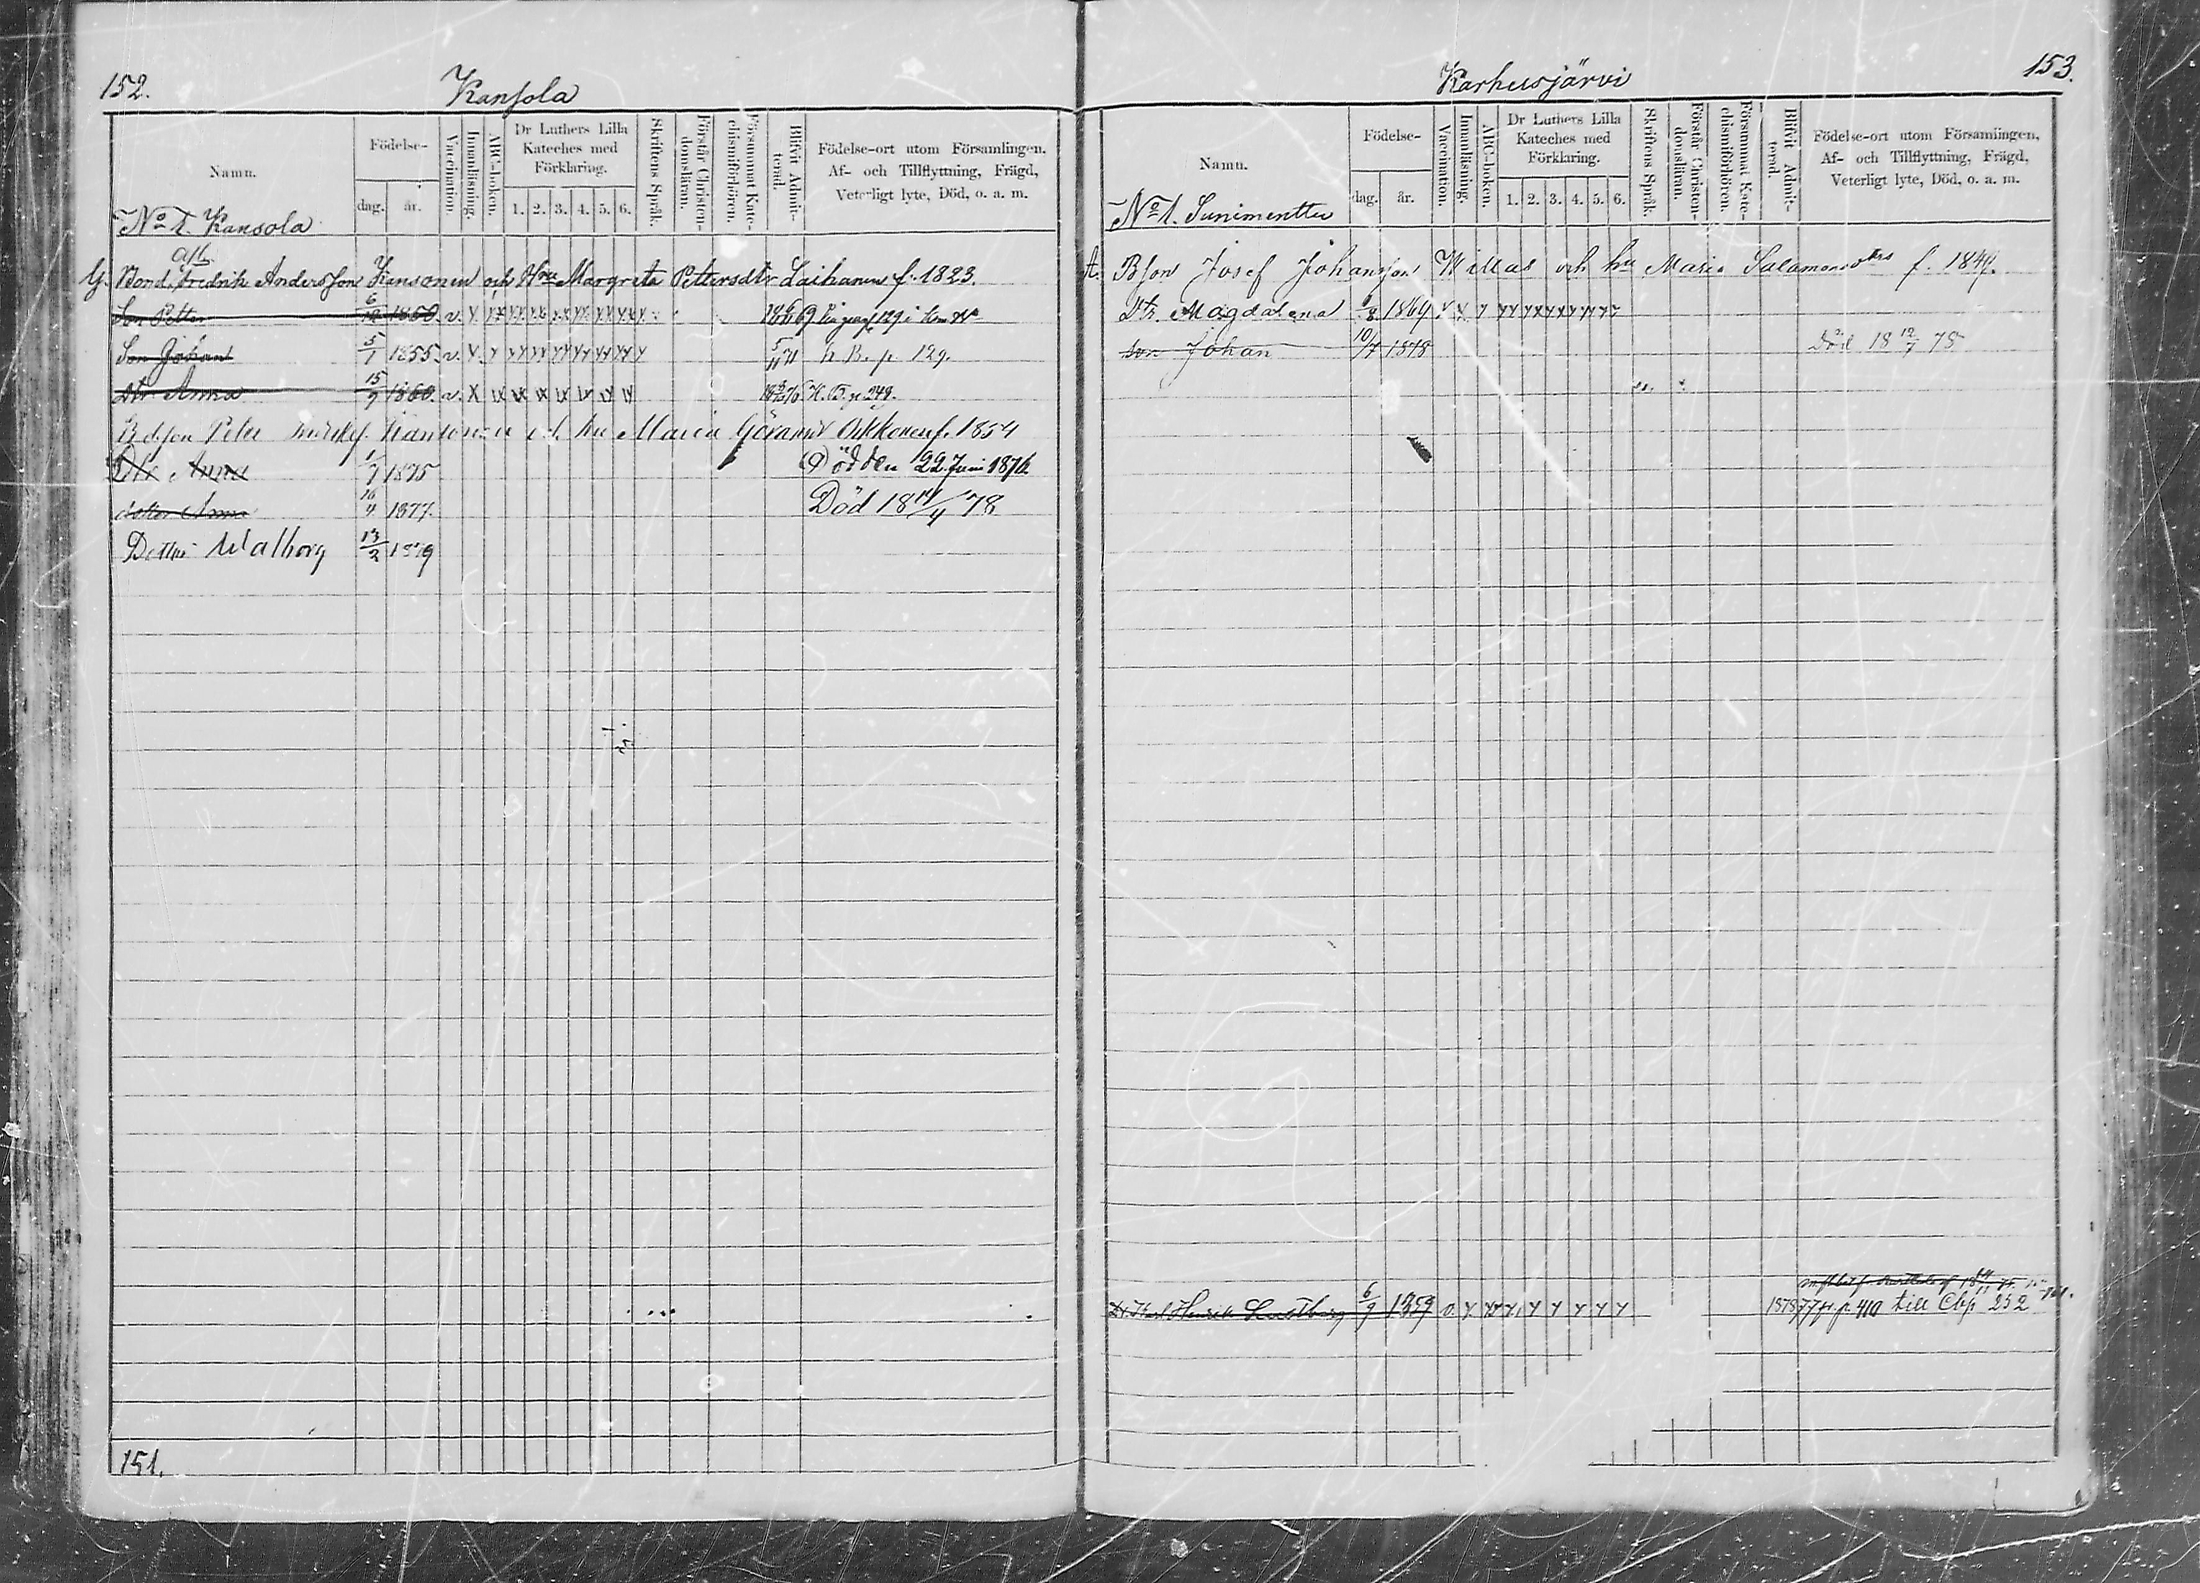 152.
Kansola
Namn.
Födelse-
dag.
år.
Vaccination.
Innanläsning.
ABC-boken.
Dr Luthers Lilla
Kateches med
Förklaring.
1. 2. 3. 4. 5. 6.
Skriftens Språk.
Förstår Christen-
domslärn.
Försummat Kate-
chismiförhören.
Blifvit Admit-
terad.
Födelse-ort utom Församlingen,
Af- och Tillflyttning, Frägd,
Veterligt lyte, Död, o. a. m.
No 1. Kansola
a/1.
Bond. Fredrik Andersson Kansonen och Hru Margreta Pettersdtr Laihanen f. 1823.
Son Petter 6/12 1850. v.
Son Johan 5/1 1855 v. h B. p. 129.
Dtr Anna 15/9 1860. v. K. B. p. 249.
Bdson Peter Fredriksf. Kansonen och hu Maria Göransd Okkonen f. 1854
Dtr Anna 1/7 1875 Död den 22 Juni 1876
dotter Anna 16/4 1877. Död 18 14/4 78
Dotter Walborg 13/2 1879
151.
153.
Karhusjärvi
Namn.
Födelse-
dag.
år.
Vaccination.
Innanläsning.
ABC-boken.
Dr Luthers Lilla
Kateches med
Förklaring.
1. 2. 3. 4. 5. 6.
Skriftens Språk.
Förstår Christen-
domslärn.
Försummat Kate-
chismiförhören.
Blifvit Admit-
terad.
Födelse-ort utom Församlingen,
Af- och Tillflyttning, Frägd,
Veterligt lyte, Död, o. a. m.
No 1. Sunimenttu
A. Bson Josef Johansson Willas och hu Maria Salamonsdtr f. 1849.
Dtr. Magdalena 1869
son Johan 10/7 1878 Död 18 12/7 78
Henrik 6/9 1859 v. p. 410 till Cbp 252